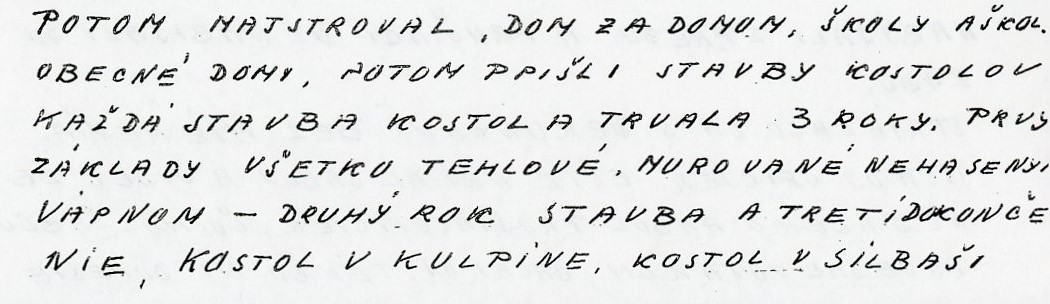 POTOM MATSTROVAL, DOM ZA DOMOM, ŠKOLY A ŠKOL.
OBECNÉ DOMY, POTOM PRIŠLI STAVBY KOSTOLOV
KAŽDÁ STAVBA KOSTOLA TRVALA 3 ROKY. PRVÝ
ZÁKLADY VŠETKO TEHLOVÉ, MUROVANÉ NEHASENÝM
VÁPNOM – DRUHÝ ROK STAVBA A TRETÍ DOKONČE
NIE, KOSTOL V KULPÍNE, KOSTOL V SILBAŠI